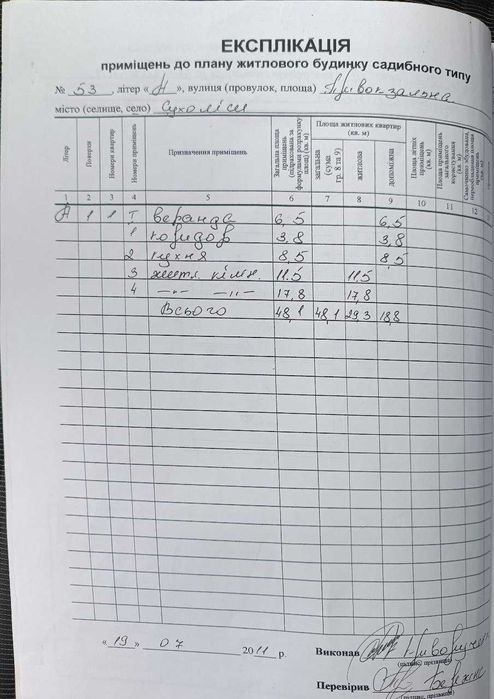 ЕКСПЛІКАЦІЯ
приміщень до плану житлового будинку садибного типу
№ 53, літер « А », вулиця (провулок, площа) Привокзальна
місто (селище, село) Сухоліси
Літер Поверхи Номери квартир Номери приміщень Призначення приміщень Загальна площа приміщень (підрахована за формулами розрахунку площ) (кв. м) Площа житлових квартир (кв. м) загальна (сума гр. 8 та 9) житлова допоміжна Площа літніх приміщень (кв. м) Площа приміщень загального користування (кв. м)
1 2 3 4 5 6 7 8 9 10 11 12
А 1 1 I веранда 6,5 6,5
1 коридор 3,8 3,8
2 кухня 8,5 8,5
3 житл. кімн. 11.5 11.5
4 —„— —„— 17,8 17,8
Всього 48,1 48,1 29,3 18,8
« 19 » 07 2011 р.
Виконав
(підпис, прізвище)
Перевірив
(підпис, прізвище)